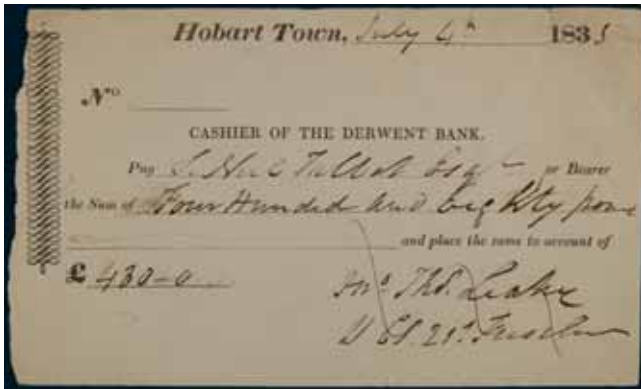 Hobart Town, July 4th 1835
No
CASHIER OF THE DERWENT BANK.
Pay Talbot Esqr or Bearer
the Sum of Four Hundred and Eighty
and place the same to account of
£ 480-0
Thos. Leake
21st